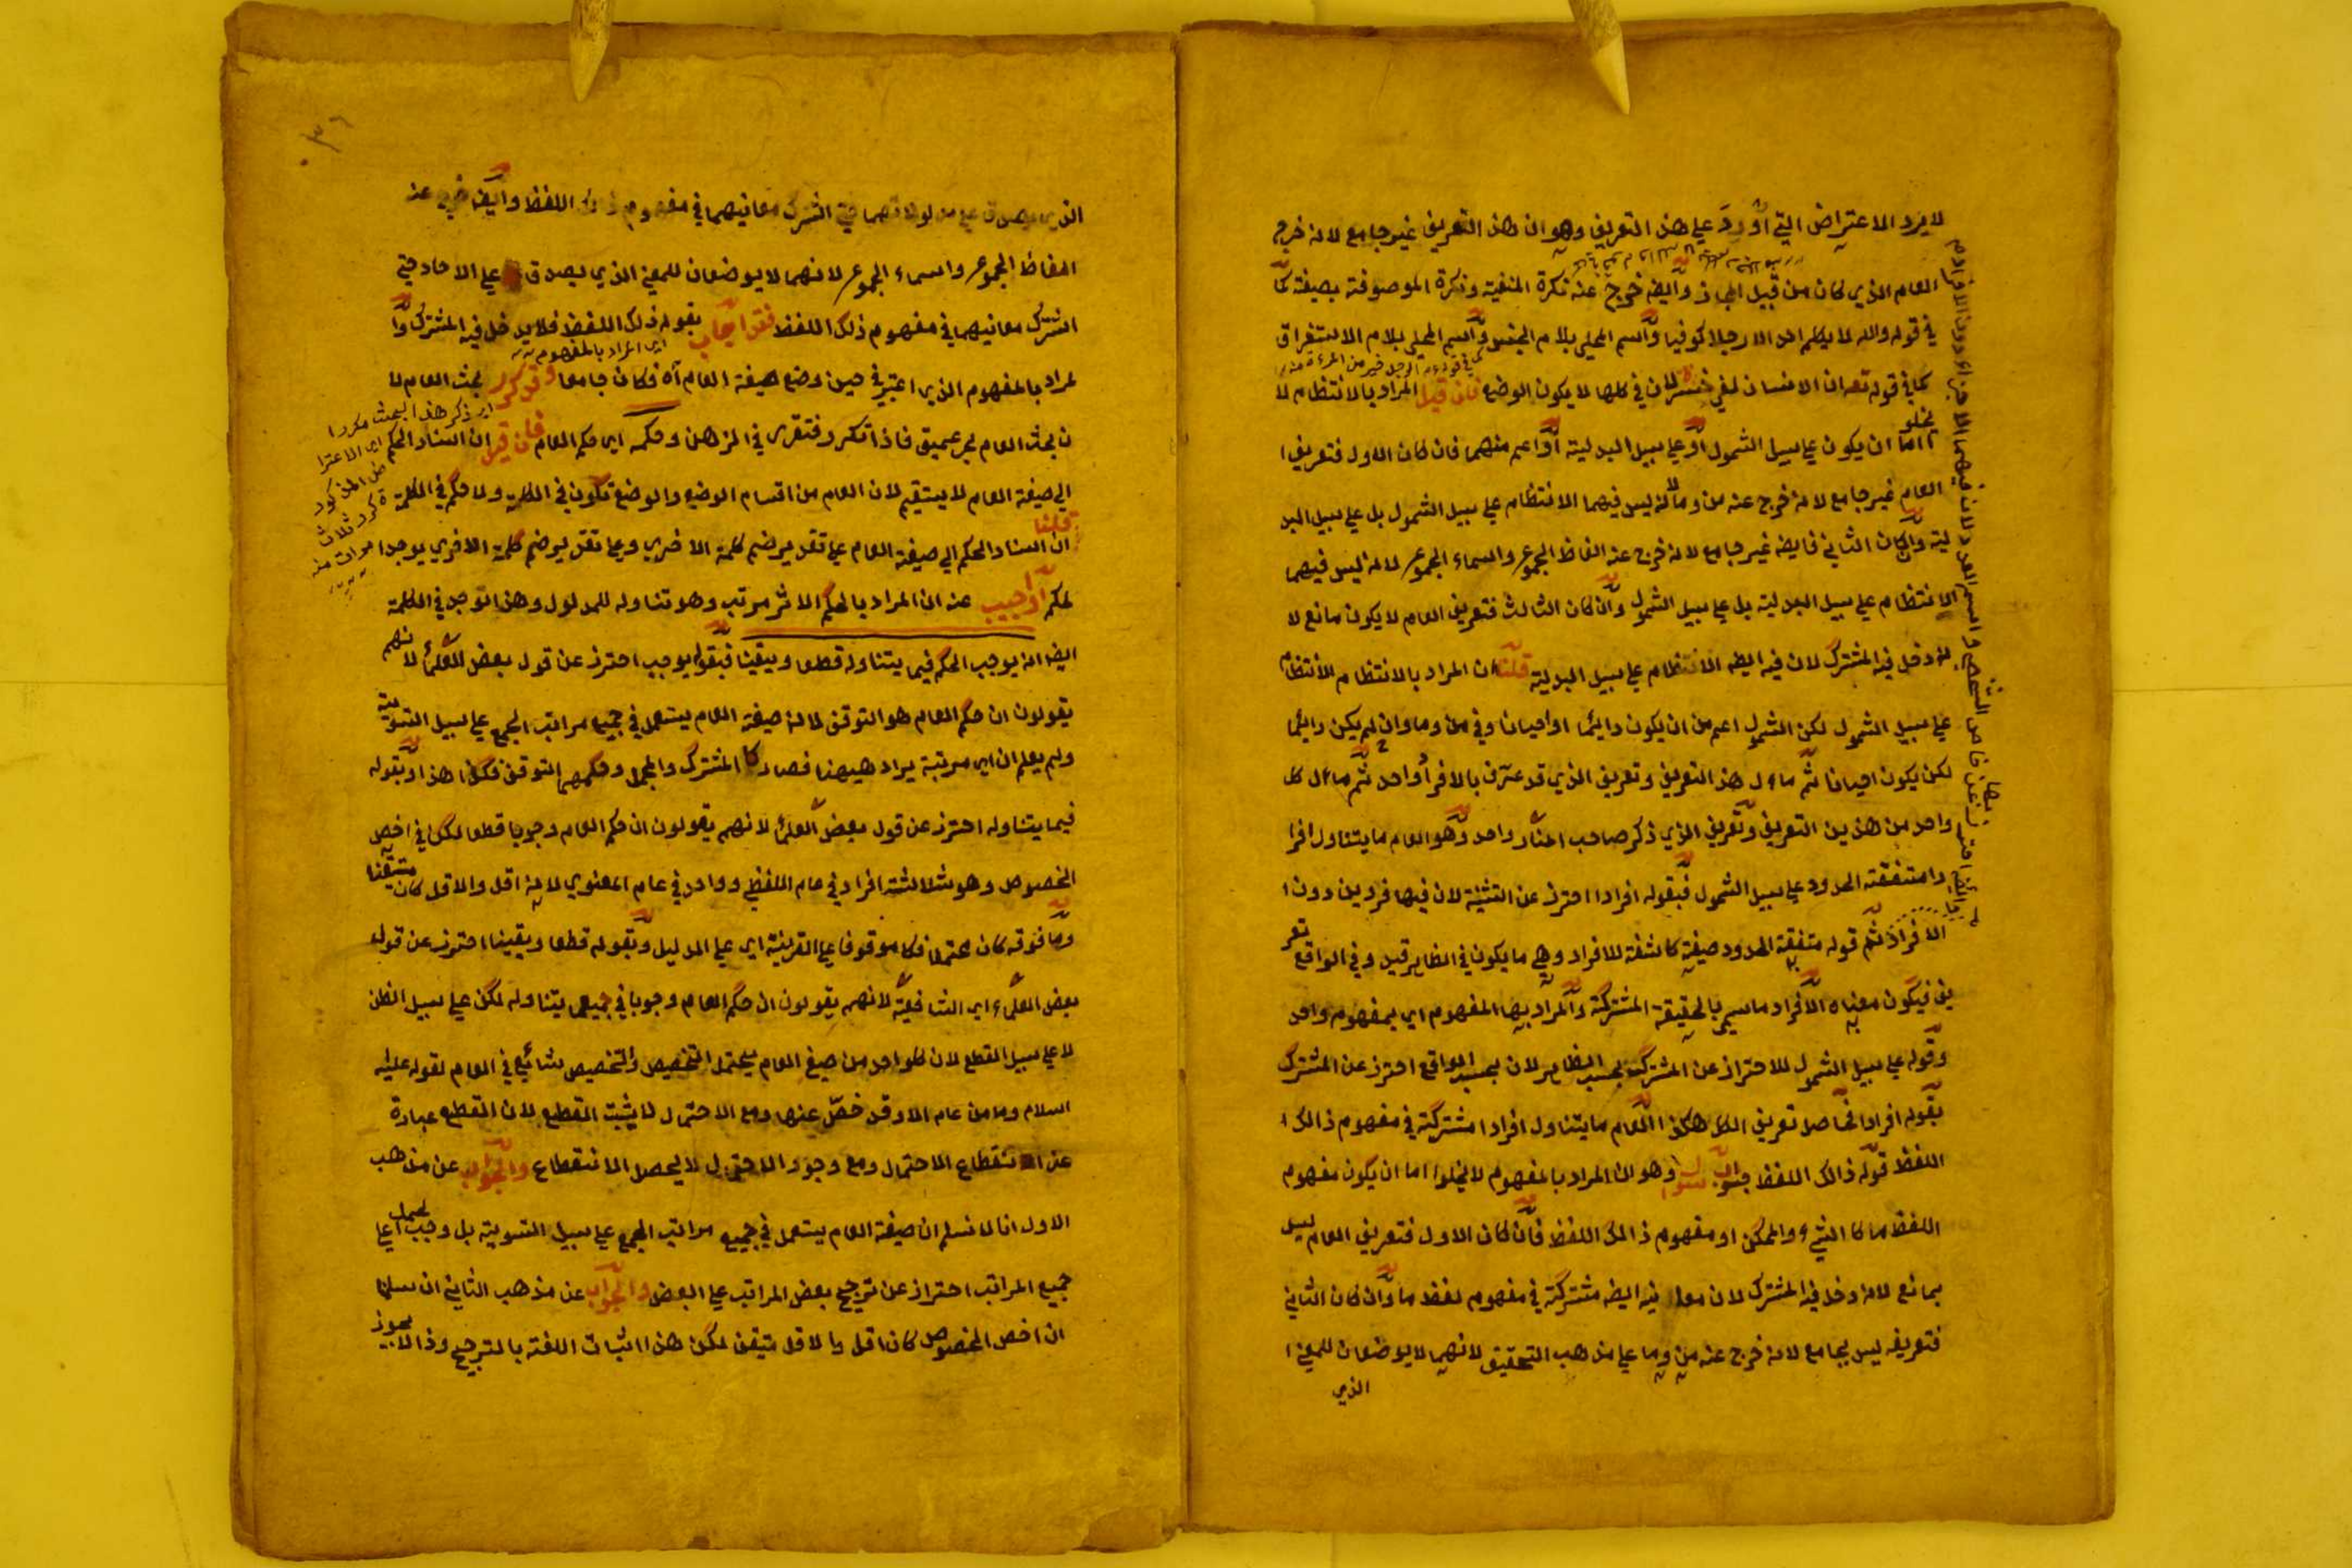 لا يرد الاعتراض التي أورد علي هذ التعريف وهو ان هذ التعريف غير جامع لانه خرج
العام الذي كان من قبيل المجاز وايضه خرج عنه نكرة المنفية ونكرة الموصوفة بصيفة كما
في قوله والله لا يكلم احد الا رجلا كوفيا واسم المحلي بلام الجنس واسم المحلي بلام الاستغراق
كما في قوله تعه ان الانسان لفي خسر لان في كلها لا يكون الوضع فان قيل المراد بالانتظام لا
يخلو
اما ان يكون علي سبيل الشمول او علي سبيل البدلية او اعم منهما فان كان الاول فتعريف ا
العام غير جامع لانه خرج عنه من وما لانه ليس فيهما الانتظام علي سبيل الشمول بل علي سبيل البد
لية وان كان الثاني فايضه غير جامع لانه خرج عنه الفاظ الجموع واسماء الجموع لانه ليس فيهما
الانتظام علي سبيل البدلية بل علي سبيل الشمول وان كان الثالث فتعريف العام لا يكون مانع لا
نه دخل فيه المشترك لان فيه ايضه الانتظام علي سبيل البدلية قلنا ان المراد بالانتظام الانتظام
علي سبيل الشمول لكن الشمول اعم من ان يكون دايما او احيانا وفي من وما وان لم يكن دايما
لكن يكون احيانا ثم مأول هذ التعريف وتعريف الذي قد عرف بالافر واحد ثم مأول كل
واحد من هذين التعريف وتعريف الذي ذكر صاحب المنار واحد وهو العام ما يتناول افرا
دا متفقته الحدود علي سبيل الشمول فبقوله افرادا احترز عن التثنية لان فيها فردين دون ا
الافراد ثم قوله متفقة الحدود صيفة كاشفة للافراد وهي ما يكون في الظاهر قيد وفي الواقع تعر
يف فيكون معناه الافراد ما سيمي بالحقيقة المشتركة والمراد بها المفهوم اي بمفهوم واحد
وقوله علي سبيل الشمول للاحتراز عن المشترك بحسب الظاهر لان بحسب الواقع احترز عن المشترك
بقوله افرادا فحاصل تعريف الكل هكذا العام ما يتناول افرادا مشتركة في مفهوم ذالك ا
اللفظ قوله ذالك اللفظ جواب سوال وهو ان المراد بالمفهوم لا يخلوا اما ان يكون مفهوم
اللفظ ما كا الشيء والممكن او مفهوم ذالك اللفظ فان كان الاول فتعريف العام ليس
بمانع لانه دخل فيه المشترك لان فيه ايضه مشتركة في مفهوم لفظ ما وان كان الثاني
فتعريفه ليس بجامع لانه خرج عنه من وما علي مذهب التحقيق لانهما لا يوضعان للمعني ا
الذي
الذي يصدق علي مدلولاتهما حتي اشترك معانيهما في مفهوم ذلك اللفظ وايضه خرج عنه
الفاظ الجموع واسماء الجموع لانهما لا يوضعان للمعني الذي يصدق علي الاحاد حتي
اشترك معانيهما في مفهوم ذلك اللفظ فقد اجاب بقوله ذلك اللفظ فلا يدخل فيه المشترك وا
اي المراد بالمفهوم
لمراد بالمفهوم الذي اعتبر في حين وضع صيفة العام آه فكان جامعا وقد كرر بحث العام لا
اي ذكر هذ البحث مكررا
ن بحث العام بحر عميق فاذا تكرر فتقرر في الذهن وحكمه اي حكم العام فان قيل ان اسناد الحكم
الي صيفة العام لا يستقيم لان العام من اقسام الوضع والوضع تكون في الكلمة ولا حكم في الكلمة
قلنا
ان اسناد الحكم الي صيفة العام علي تقدير ضم كلمة الاخري وعلي تقدير ضم كلمة الاخري يوجد ا
لحكم او اجيب عنه ان المراد بالحكم الاثر مرتب وهو تناوله للمدلول وهذ التوجد في الكلمة
ايضه انه يوجب الحكم فيما يتناوله قطعا ويقينا فبقوله يوجب احترز عن قول بعض العلماء لانهم
يقولون ان حكم العام هو التوقف لما انه صيفة العام يستعمل في جميع مراتب الجمع علي سبيل التسوية
ولم يعلم ان اي مرتبة يراد هيهنا فصار كا المشترك والمجمل وحكمهم التوقف فكذا هذا وبقوله
فيما يتناوله احترز عن قول بعض العلماء لانهم يقولون ان حكم العام وجوبا قطعا لكن في اخص
الخصوص وهو ثلاثة افراد في عام اللفظي وواحد في عام المعنوي لانه اقل والاقل كان متيقنا
وما فوقه كان محتملا فكا موقوفا علي القرينة اي علي الدليل وبقوله قطعا ويقينا احترز عن قول
بعض العلماء اي الشافعية لانهم يقولون ان حكم العام وجوبا في جميع يتناوله لكن علي سبيل الظن
لا علي سبيل القطع لان كلواحد من صيغ العام يحتمل التخصيص والتخصيص شائع في العام لقوله عليه
السلام وما من عام الا وقد خص عنها ومع الاحتمال لا يثبت القطع لان القطع عبارة
عن انقطاع الاحتمال ومع وجود الاحتمال لا يحصل الانقطاع والجواب عن مذهب
الاول انا لا نسلم ان صيفة العام يستعمل في جميع مراتب الجمع علي سبيل التسوية بل وجب الحمل علي
جميع المراتب احتراز عن ترجيح بعض المراتب علي البعض والجواب عن مذهب الثاني ان سلمنا
ان اخص الخصوص كان اقل والاقل متيقن لكن هذا اثبات اللغة بالترجيح وذا لا يجوز